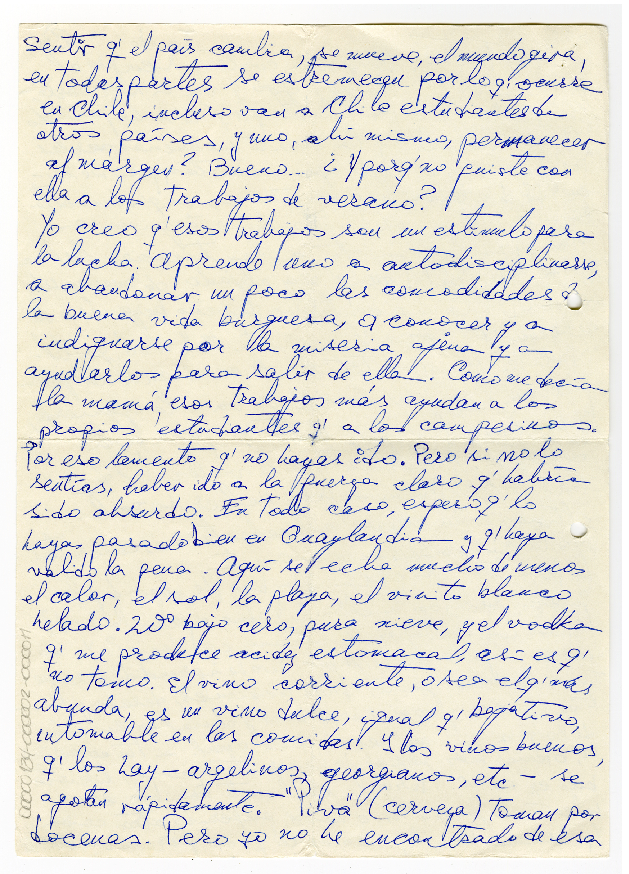 Sentir q' el país cambia, se mueve, el mundo gira,
en todas partes se estremecen por lo q' ocurre
en Chile, incluso van a Chile estudiantes de
otros países, y uno, ahí mismo, permanecer
al márgen? Bueno... ¿Y porq' no fuiste con
ella a los Trabajos de verano?
Yo creo q' esos trabajos son un estímulo para
la lucha. Aprende uno a autodisciplinarse,
a abandonar un poco las comodidades d
la buena vida burguesa, a conocer y a
indignarse por la miseria ajena y a
ayudarlos para salir de ella. Como me decía
la mamá, esos trabajos más ayudan a los
propios estudiantes q' a los campesinos.
Por eso lamento q' no hayas ido. Pero si no lo
sentías, haber ido a la fuerza claro q' habría
sido absurdo. En todo caso, espero q' lo
hayas pasado bien en Guaylandia y q' haya
valido la pena. Aquí se echa mucho de menos
el calor, el sol, la playa, el vinito blanco
helado. 20º bajo cero, pura nieve, y el vodka
q' me produce acidez estomacal, así es q'
no tomo. El vino corriente, o sea el q' más
abunda, es un vino dulce, igual q' bajativo,
intomable en las comidas. Y los vinos buenos,
q' los hay - argelinos, georgianos, etc - se
agotan rápidamente. "Piva" (cerveza) toman por
docenas. Pero yo no he encontrado de esa